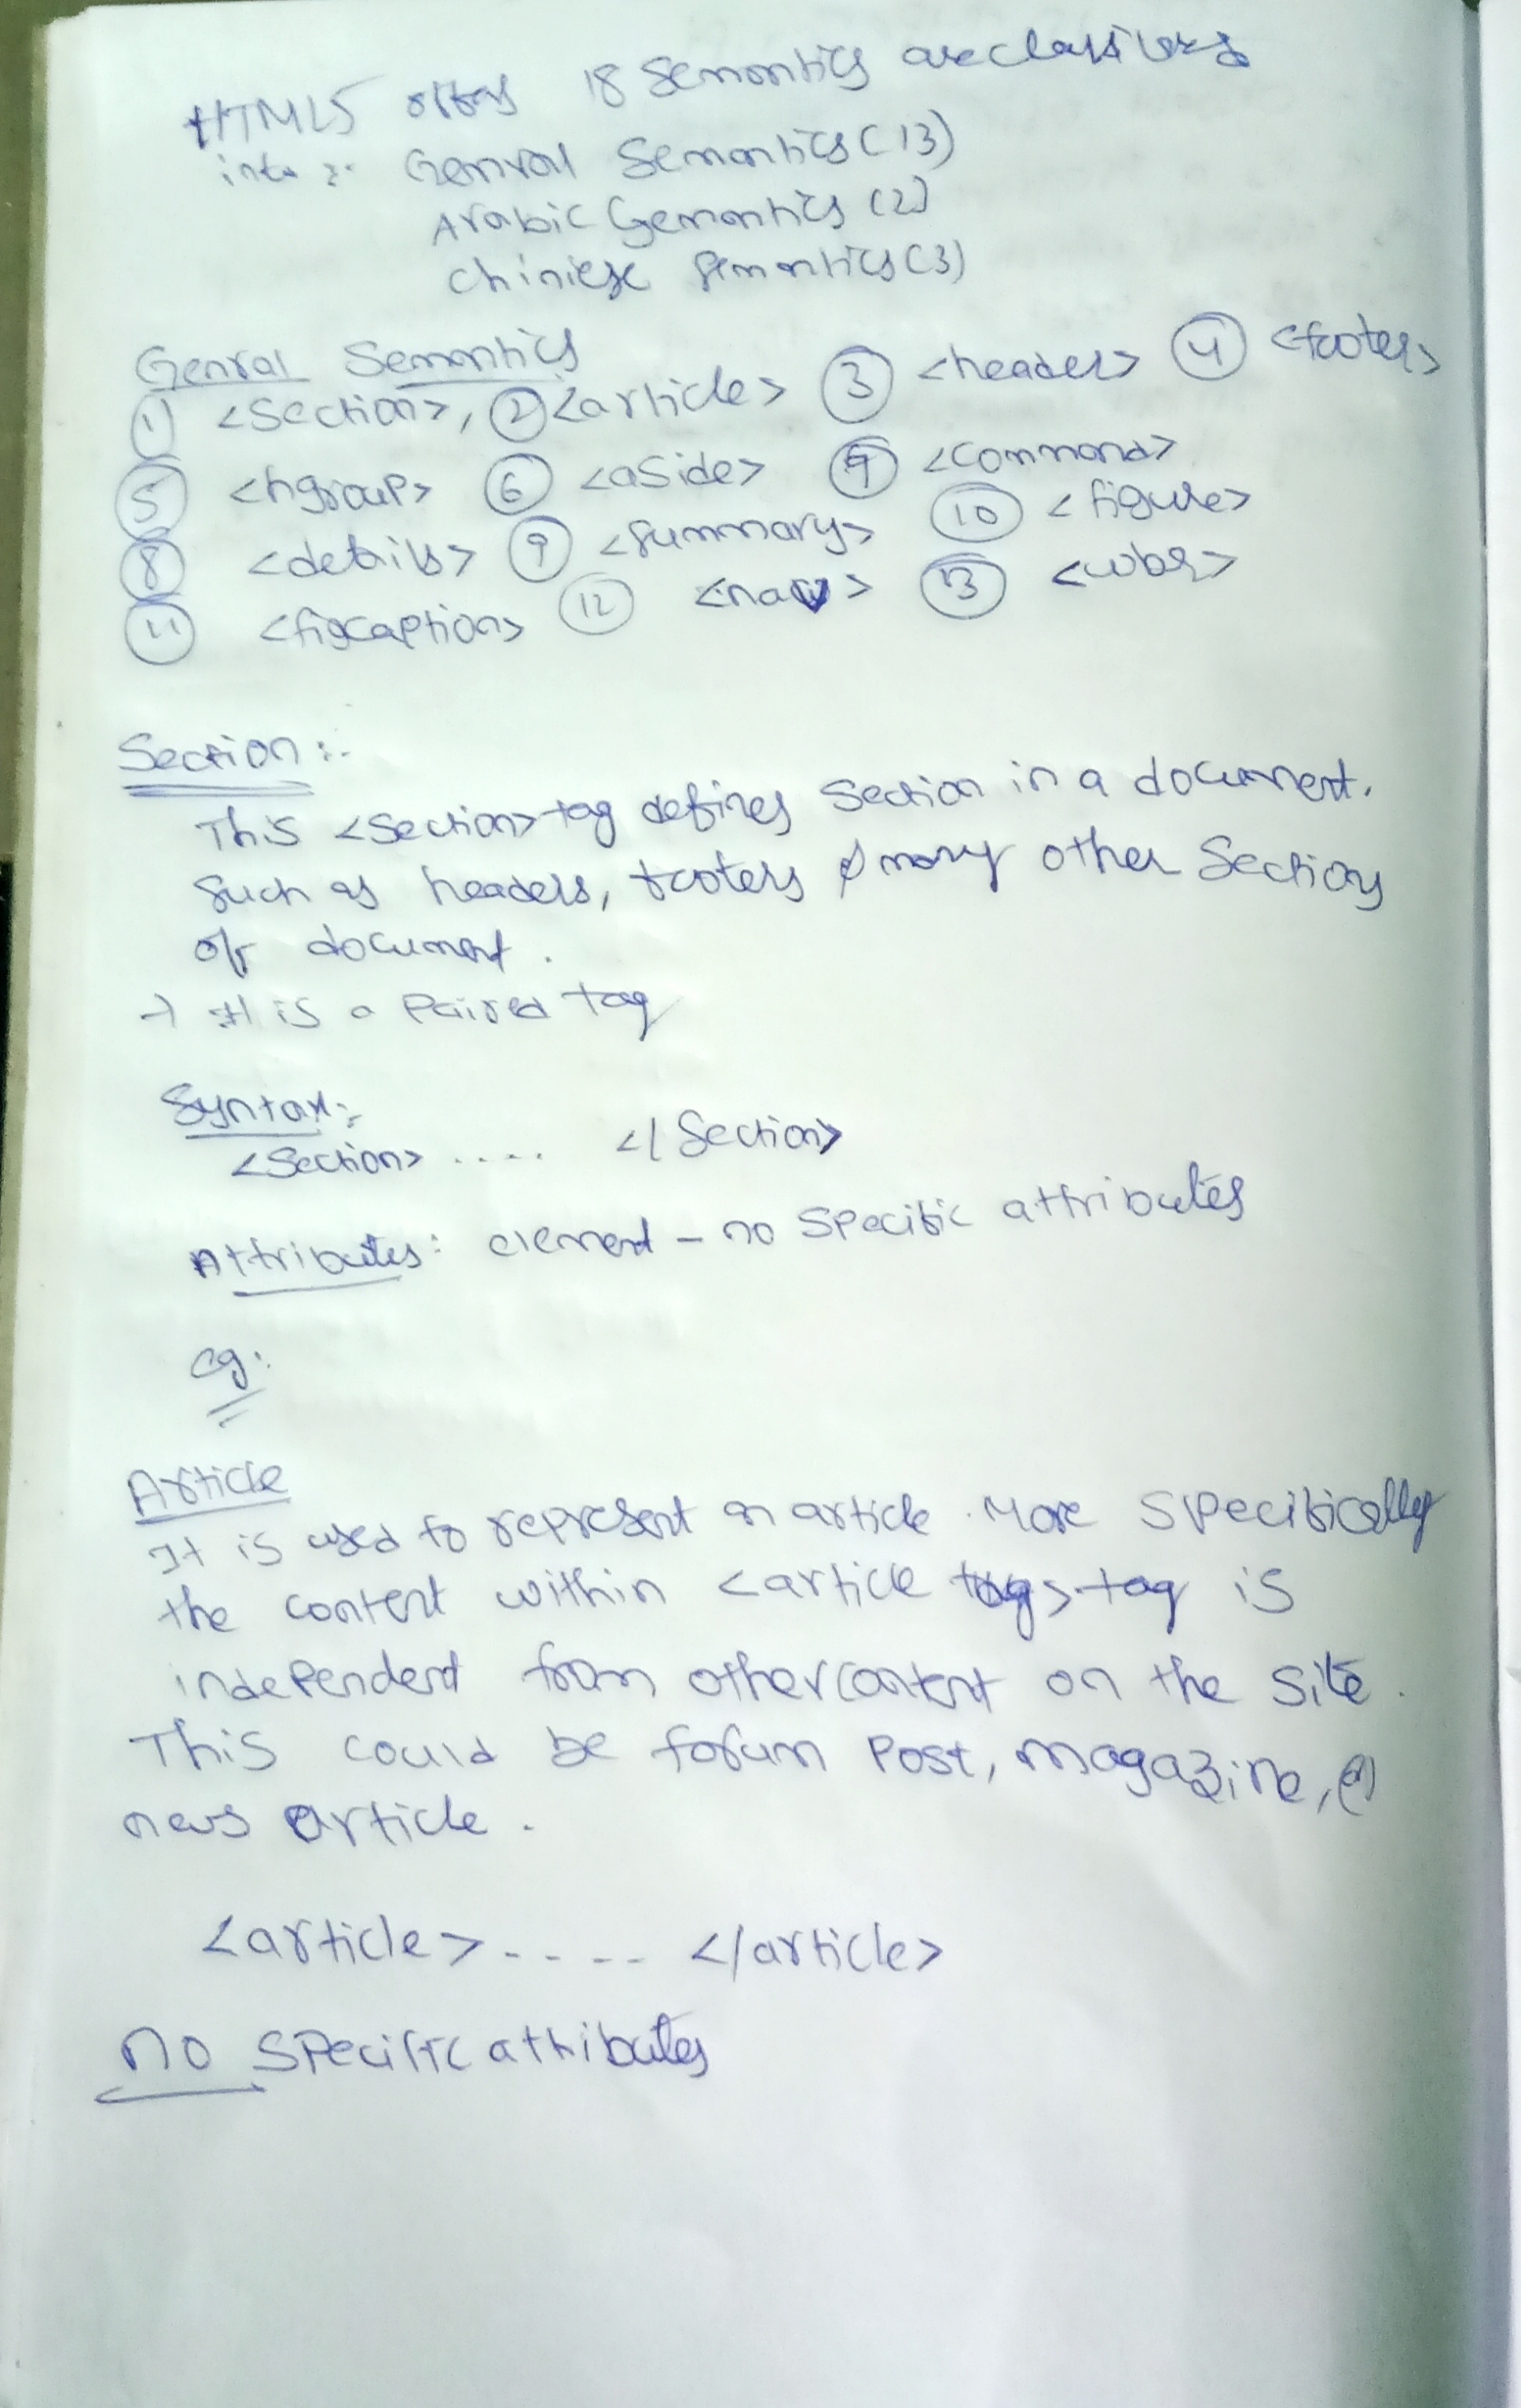 HTML5 offers 18 Semantics are classifieds
into :- Genral Semantics (13)
Arabic Gemantics (2)
chiniese semantics (3)
Genral Semantics
① <section>, ② <article> ③ <header> ④ <footer>
⑤ <hgroup> ⑥ <aside> ⑦ <command>
⑧ <details> ⑨ <summary> ⑩ <figure>
⑪ <figcaption> ⑫ <nav> ⑬ <wbr>
Section :-
This <section> tag defines section in a document.
Such as headers, footers & many other sections
of document.
→ It is a Paired tag
Syntax:-
<section> .... </section>
Attributes: element - no specific attributes
eg:
Article
It is used to represent an article. More specifically
the content within <article tag> tag is
independent from other content on the site.
This could be forum Post, magazine, (or)
news article.
<article> ----- </article>
no specific attributes